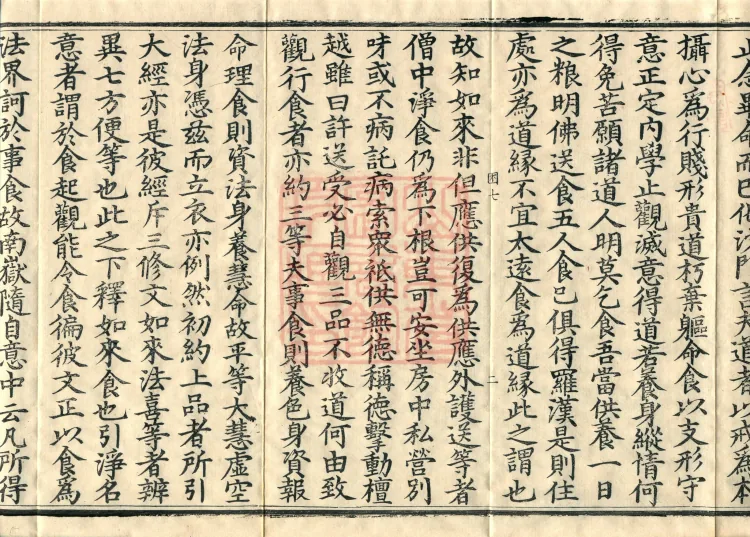 止
命而已
道者以戒為本
攝心為行賤形貴道朽棄軀命食以支形守
意正定內學止觀滅意得道若養身縱情何
得免苦願諸道人明莫乞食吾當供養一日
之粮明佛送食五人食已俱得羅漢是則住
處亦為道緣不宜太遠食為道緣此之謂也
囲七
二
故知如來非但應供復為供應外護送等者
僧中淨食仍為下根豈可安坐房中私營別
味或不病託病索衆祇供無德稱德擊動檀
越雖曰許送受必自觀三品不收道何由致
觀行食者亦約三等夫事食則養色身資報
命理食則資法身養慧命故平等大慧虛空
法身憑茲而立衣亦例然初約上品者所引
大經亦是彼經斥三修文如來法喜等者辨
異七方便等也此之下釋如來食也引淨名
意者謂於食起觀能令食徧彼文正以食為
法界訶於事食故南嶽隨自意中云凡所得